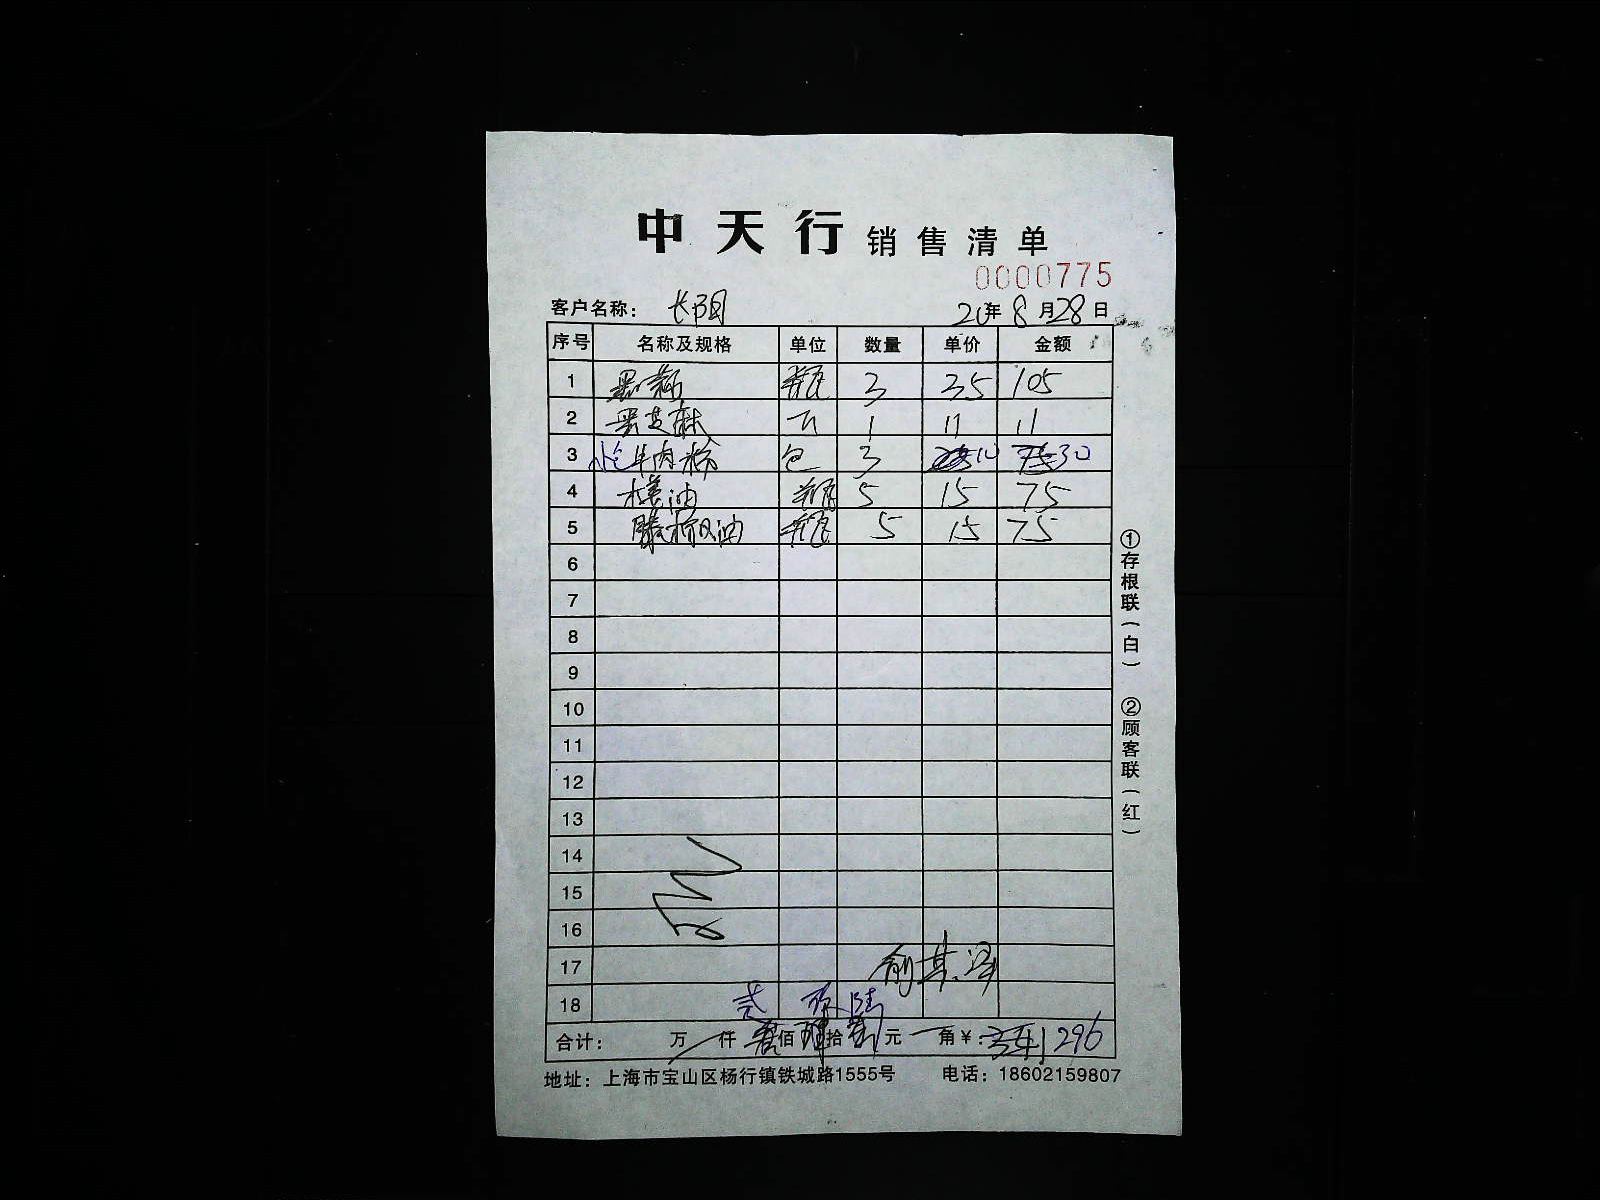 中天行 销售清单
0000775
客户名称: 长阳 20年8月28日
序号 名称及规格 单位 数量 单价 金额
1 瓶 3 35 105
2 黑芝麻 1 11 11
3 牛肉粉 包 3 10 30
4 油 瓶 5 15 75
5 油 瓶 5 15 75
6
7
8
9
10
11
12
13
14
15
16
17
18 贰 玖 陆
合计: 万 仟 佰 拾 元 角 ¥: 296
地址: 上海市宝山区杨行镇铁城路1555号 电话: 18602159807
①存根联(白)
②顾客联(红)